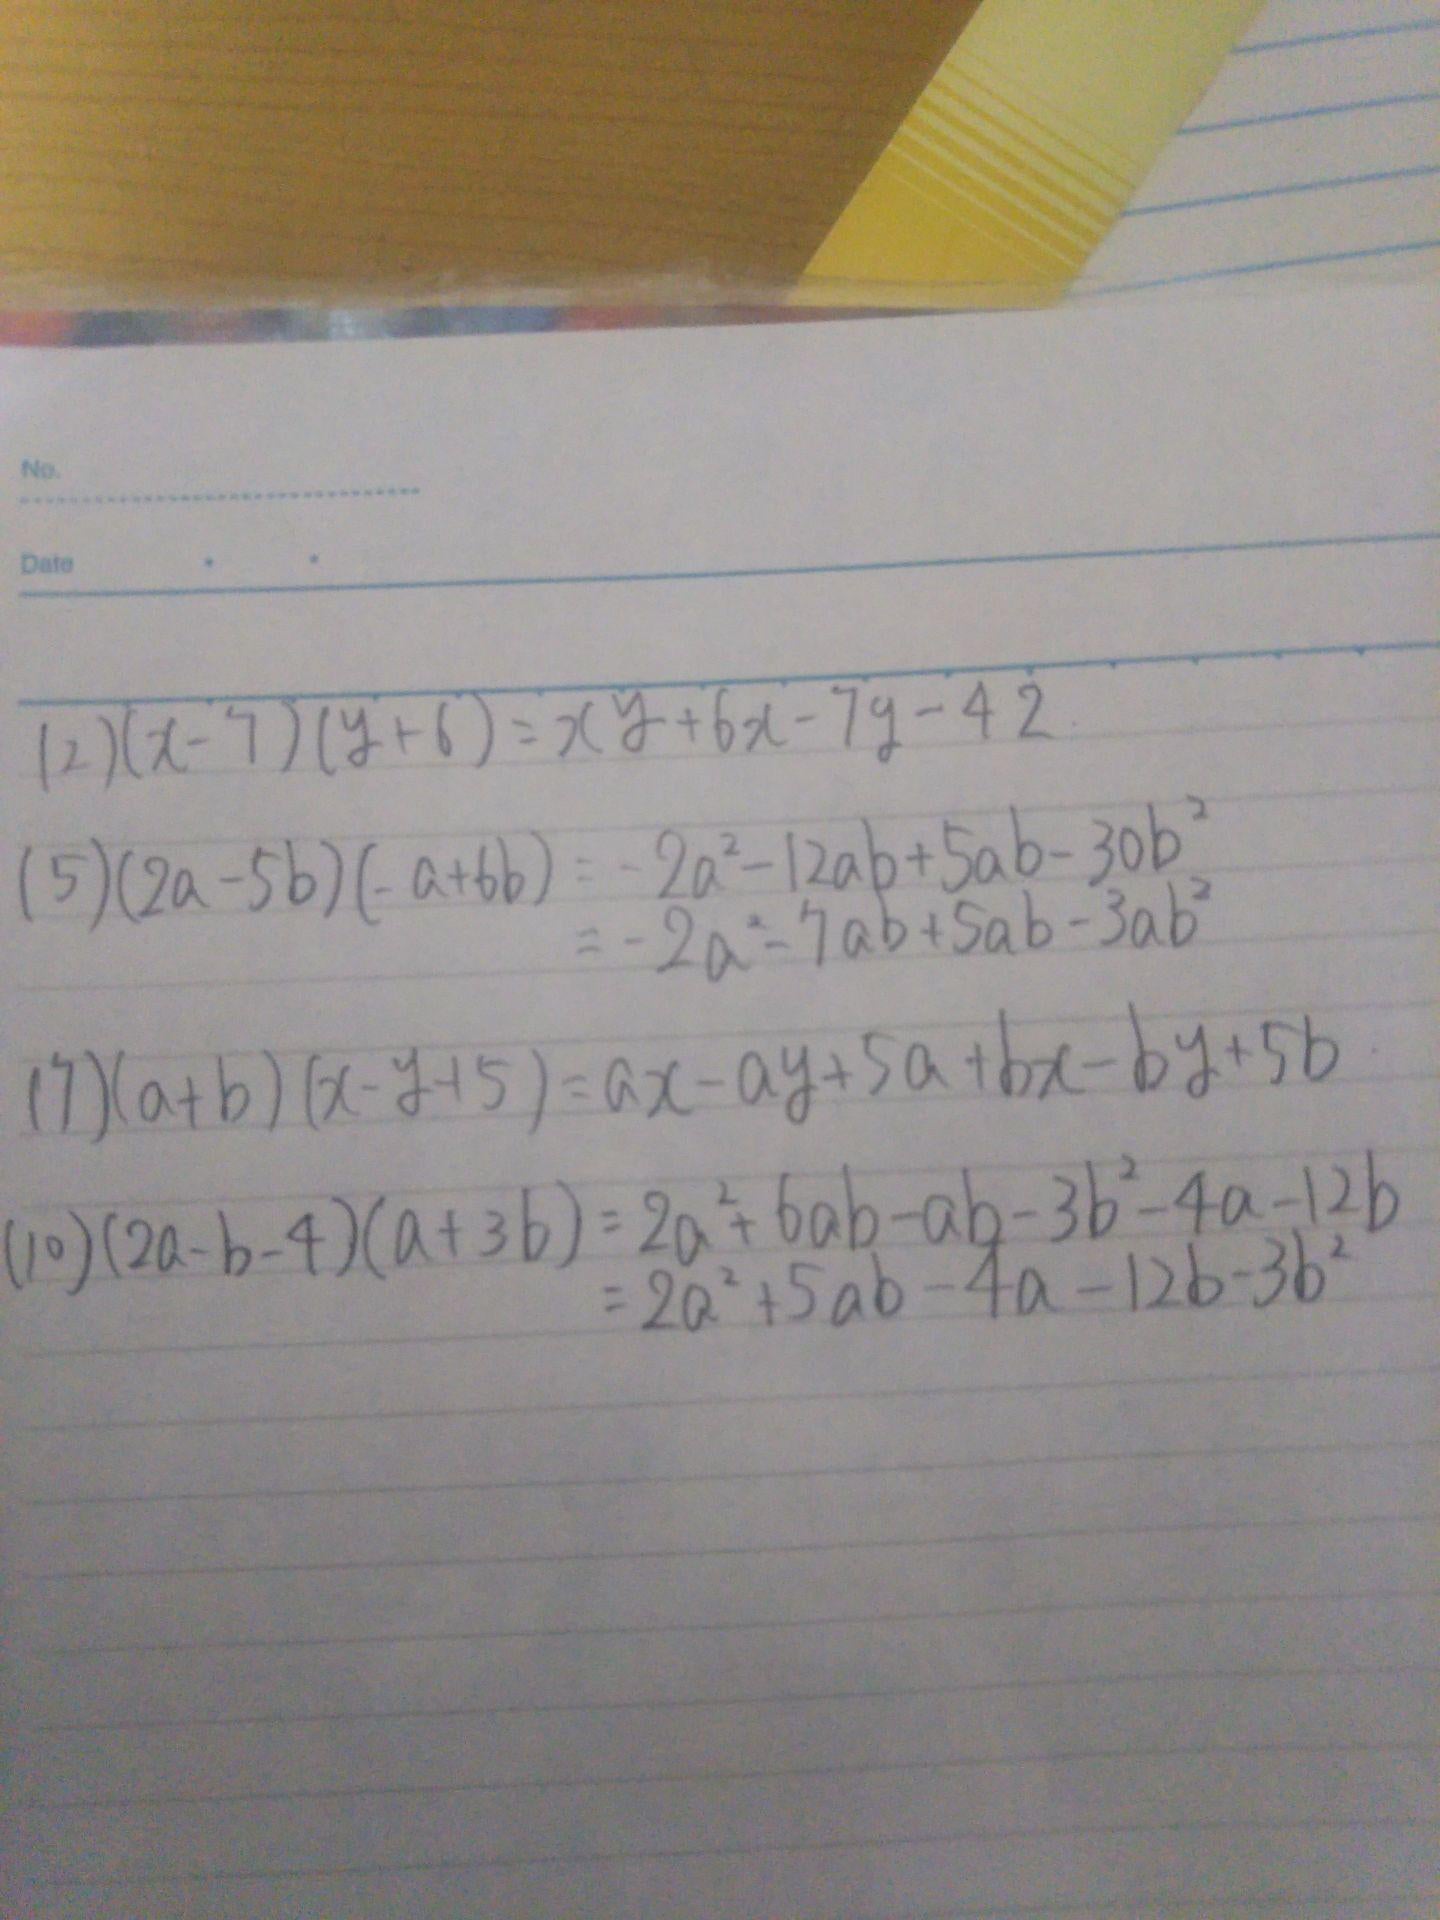 No.
Date
(2)(x-7)(y+6)=xy+6x-7y-42
(5)(2a-5b)(-a+6b)=-2a²-12ab+5ab-30b²
=-2a²-7ab+5ab-3ab²
(7)(a+b)(x-y+5)=ax-ay+5a+bx-by+5b
(10)(2a-b-4)(a+3b)=2a²+6ab-ab-3b²-4a-12b
=2a²+5ab-4a-12b-3b²